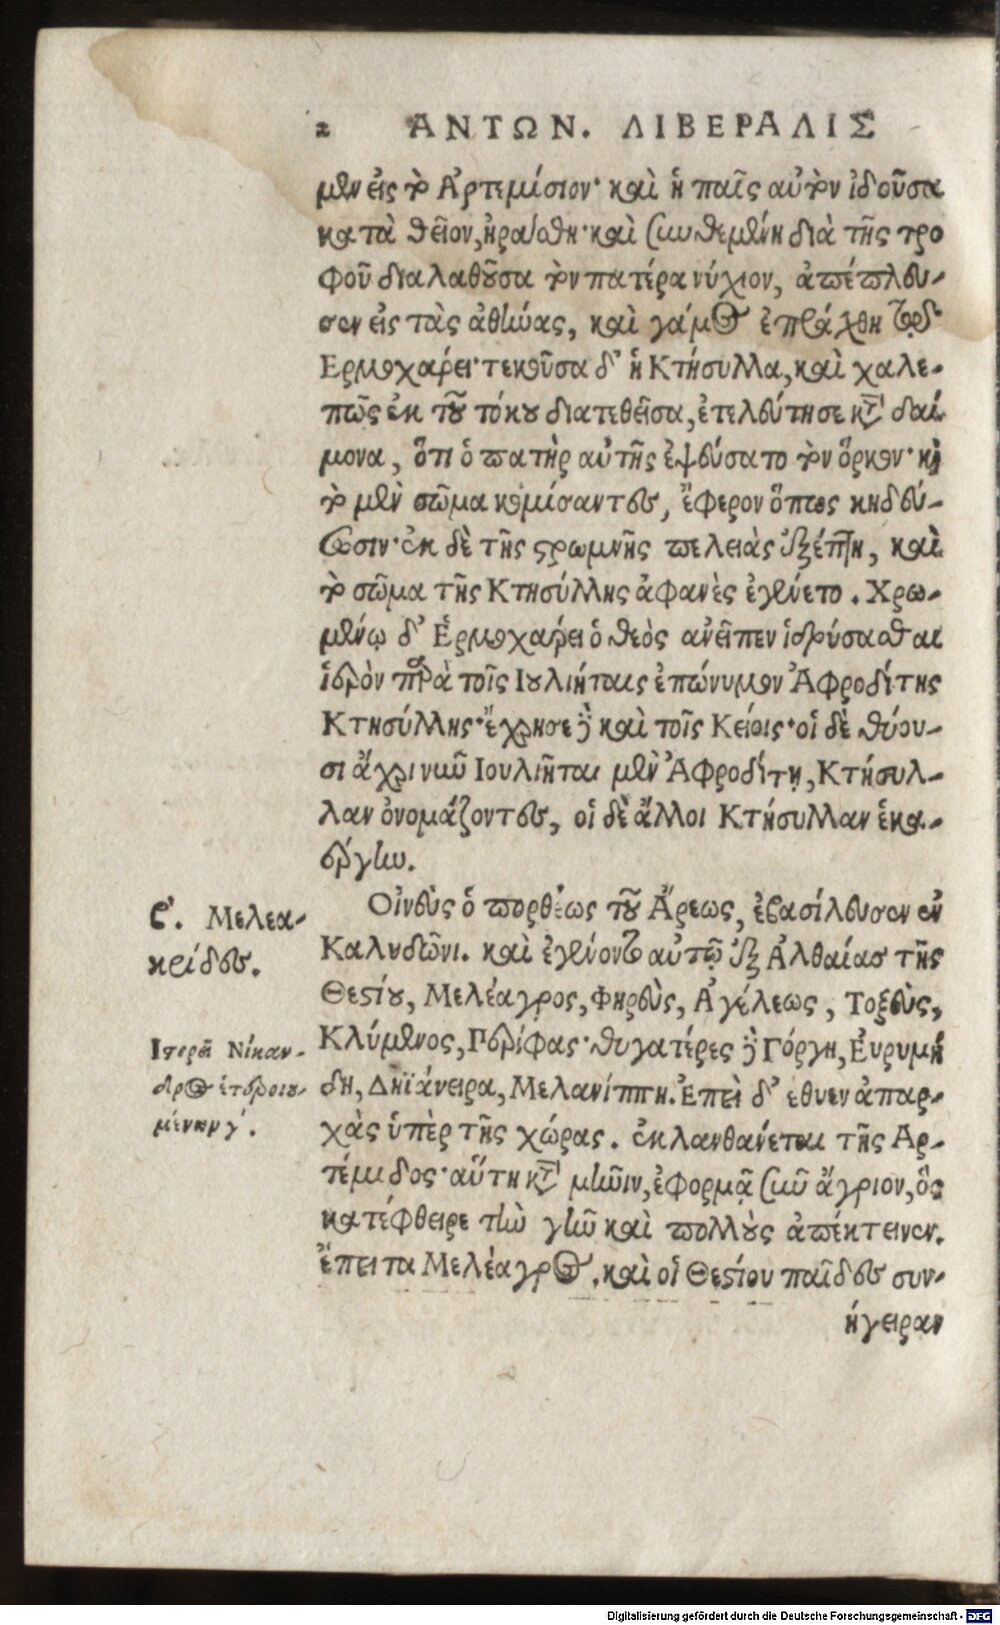 2 ΑΝΤΩΝ. ΛΙΒΕΡΑΛΙΣ
μὲν εἰς τὸ Ἀρτεμίσιον· καὶ ἡ παῖς αὐτὸν ἰδοῦσα
κατὰ θεῖον, ἠράσθη· καὶ συνθεμένη διὰ τῆς τρο
φοῦ διαλαθοῦσα τὸν πατέρα νύχιον, ἀπέπλευ-
σεν εἰς τὰς ἀθήνας, καὶ γάμος ἐπράχθη τῷδ
Ερμοχάρει· τεκοῦσα δ' ἡ Κτήσυλλα, καὶ χαλε-
πῶς ἐκ τοῦ τόκου διατεθεῖσα, ἐτελεύτησε κατὰ δαί
μονα, ὅτι ὁ πατὴρ αὐτῆς ἐψεύσατο τὸν ὅρκον· καὶ
τὸ μὲν σῶμα κομίσαντες, ἔφερον ὅπως κηδεύ-
σωσιν· ἐκ δὲ τῆς στρωμνῆς πελειὰς ἐξέπτη, καὶ
τὸ σῶμα τῆς Κτησύλλης ἀφανὲς ἐγένετο. Χρω-
μένῳ δ' Ἑρμοχάρει ὁ θεὸς ἀνεῖπεν ἱδρύσασθαι
ἱερὸν παρὰ τοῖς Ιουλιήταις ἐπώνυμον Ἀφροδίτης
Κτησύλλης· ἔχρησε δὲ καὶ τοῖς Κείοις· οἱ δὲ θύου-
σι ἄχρι νῦν Ιουλιῆται μὲν Ἀφροδίτη, Κτήσυλ-
λαν ὀνομάζοντες, οἱ δὲ ἄλλοι Κτήσυλλαν ἑκα-
έργην.
Οἰνεὺς ὁ πορθέως τοῦ Ἄρεως, ἐβασίλευσεν ἐν
ϛ'. Μελεα-
κρίδες.
Καλυδῶνι. καὶ ἐγένοντο αὐτῷ ἐξ Ἀλθαίας τῆς
Θεστίου, Μελέαγρος, Φηρεὺς, Ἀγέλεως, Τοξεὺς,
Κλύμενος, Περίφας· θυγατέρες δὲ Γόργη, Εὐρυμή
Ιστορεῖ Νίκαν-
δρος ἑτεροιου-
μένων γ'.
δη, Δηϊάνειρα, Μελανίππη. Ἐπεὶ δ' ἔθυεν ἀπαρ-
χὰς ὑπὲρ τῆς χώρας. ἐκλανθάνεται τῆς Αρ-
τέμιδος· αὕτη κατὰ μῆνιν, ἐφορμᾷ σῦν ἄγριον, ὃς
κατέφθειρε τὴν γῆν καὶ πολλοὺς ἀπέκτεινεν.
ἔπειτα Μελέαγρος, καὶ οἱ Θεστίου παῖδες συν-
ήγειραν
Digitalisierung gefördert durch die Deutsche Forschungsgemeinschaft - DFG